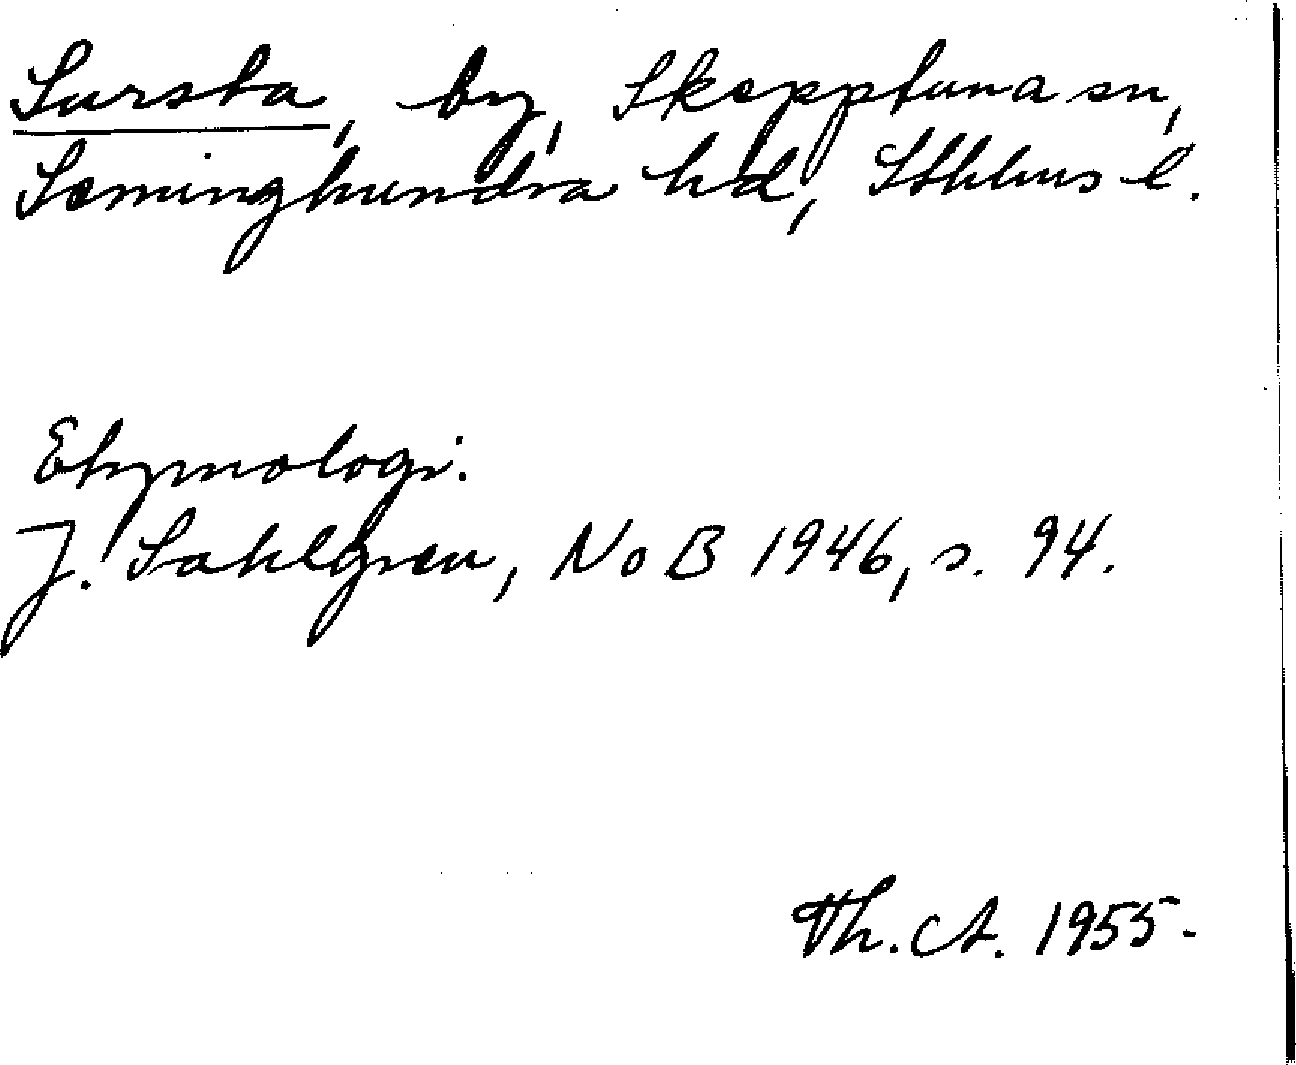 Sursta, by, Skepptuna sn,
Seminghundra hd, Sthlms l.
Etymologi.
J. Sahlgren, NoB 1946, s. 94.
Th. A. 1955.